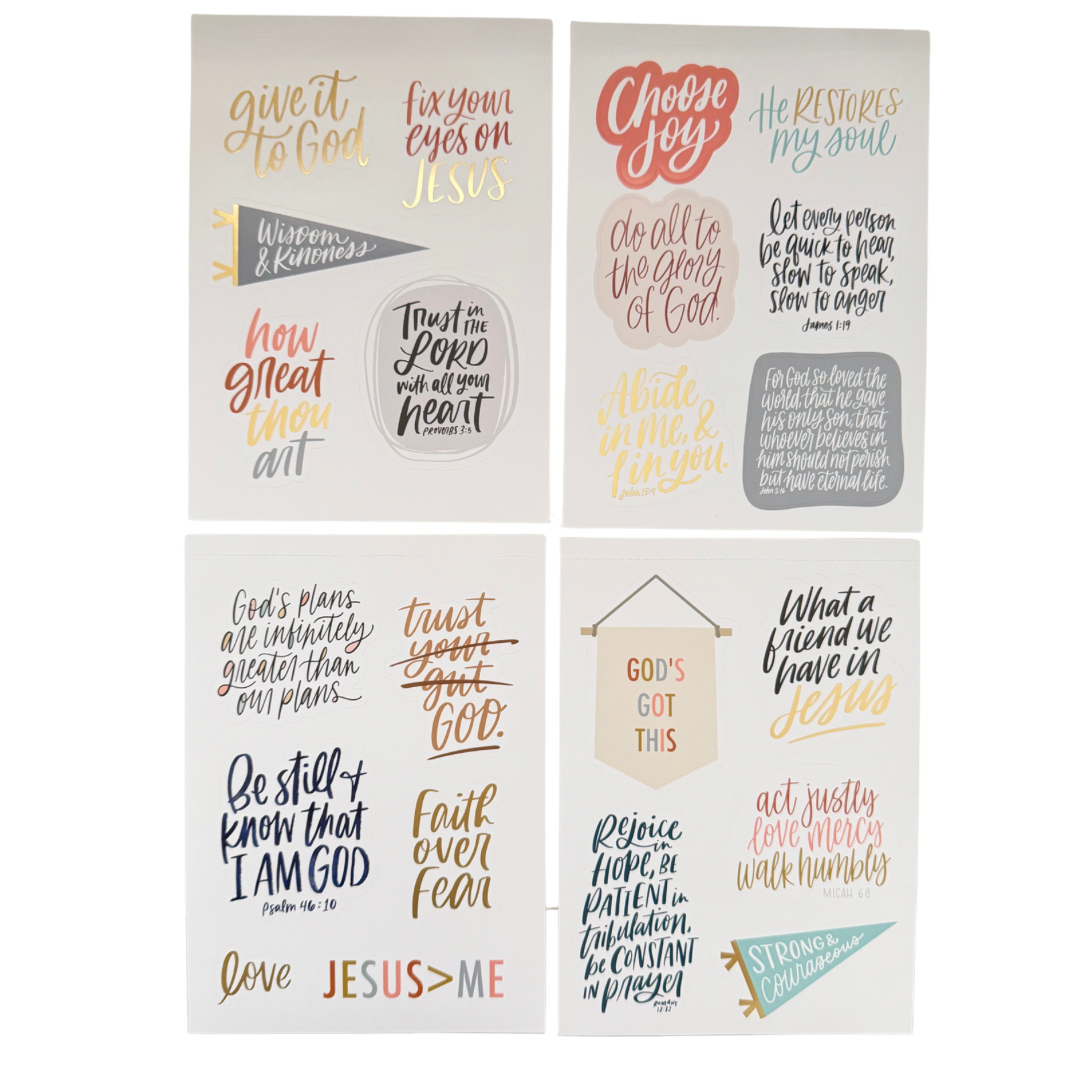 give it
to God
fix your
eyes on
JESUS
WISDOM
& KINDNESS
how
great
thou
art
Trust in
THE
LORD
with all your
heart
PROVERBS 3:5
Choose
joy
He RESTORES
my soul
do all to
the glory
of God.
let every person
be quick to hear,
slow to speak,
slow to anger
James 1:19
Abide
in me, &
I in you.
John 15:4
For God so loved the
world, that he gave
his only son, that
whoever believes in
him should not perish
but have eternal life.
John 3:16
God's plans
are infinitely
greater than
our plans
trust
your
gut
GOD.
Be still &
know that
I AM GOD
Psalm 46:10
Faith
over
Fear
love
JESUS>ME
GOD'S
GOT
THIS
What a
friend we
have in
Jesus
Rejoice
in
HOPE, BE
PATIENT in
tribulation,
be CONSTANT
IN prayer
ROMANS
12:12
act justly
love mercy
walk humbly
MICAH 6:8
STRONG &
courageous